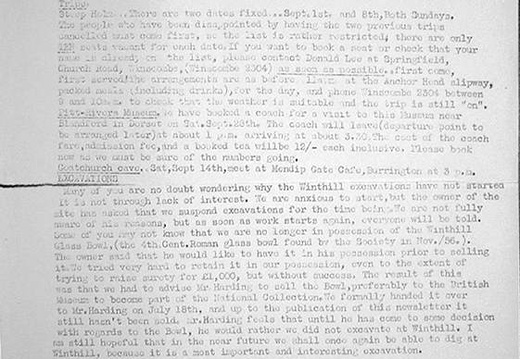 Steep Holm...There are two dates fixed...Sept.1st. and 8th,Both Sundays.
The people who have been disappointed by having the two previous trips
cancelled must come first, so the list is rather restricted, there are only
seats vacant for each date.If you want to book a seat or check that your
name is already on the list, please contact Donald Lee at Springfield,
Church Road, Winscombe, (Winscombe 2304) as soon as possible. First come,
first served!The arrangements are as before - leave at the Anchor Head slipway,
packed meals (including drinks),for the day, and phone Winscombe 2304 between
9 and 10a.m. to check that the weather is suitable and the trip is still "on".
Pitt-Rivers Museum. We have booked a coach for a visit to this Museum near
Blandford in Dorset on Sat.Sept.28th. The coach will leave(departure point to
be arranged later)at about 1 p.m. arriving at about 3.30.The cost of the coach
fare,admission fee,and a booked tea willbe 12/- each inclusive. Please book
now as we must be sure of the numbers going.
Goatchurch cave. Sat,Sept 14th,meet at Mendip Gate Cafe,Burrington at 3 p.m.
EXCAVATIONS
Many of you are no doubt wondering why the Winthill excavations have not started
It is not through lack of interest. We are anxious to start,but the owner of the
site has asked that we suspend excavations for the time being.We are not fully
aware of his reasons, but as soon as work starts again, everyone will be told.
Some of you may not know that we are no longer in possession of the Winthill
Glass Bowl,(the 4th.Cent.Roman glass bowl found by the Society in Nov./56.).
The owner said that he would like to have it in his possession prior to selling
it.We tried very hard to retain it in our possession, even to the extent of
trying to raise surety for £1,000, but without success. The result of this
was that we had to advise Mr.Harding to sell the Bowl,preferably to the British
Museum to become part of the National Collection.We formally handed it over
to Mr.Harding on July 18th, and up to the publication of this newsletter it
still hasn't been sold. Mr.Harding feels that until he has come to some decision
with regards to the Bowl, he would rather we did not excavate at Winthill. I
am still hopeful that in the near future we shall once again be able to dig at
Winthill, because it is a most important and interesting excavation.